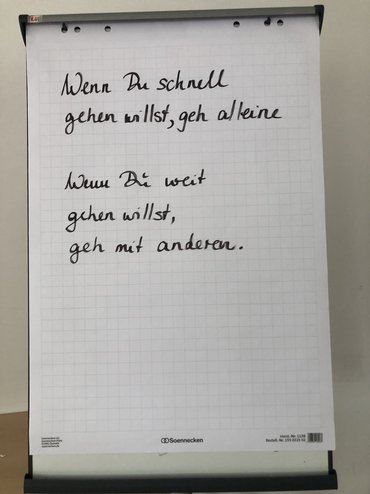 Wenn Du schnell
gehen willst, geh alleine
Wenn Du weit
gehen willst,
geh mit anderen.
Soennecken